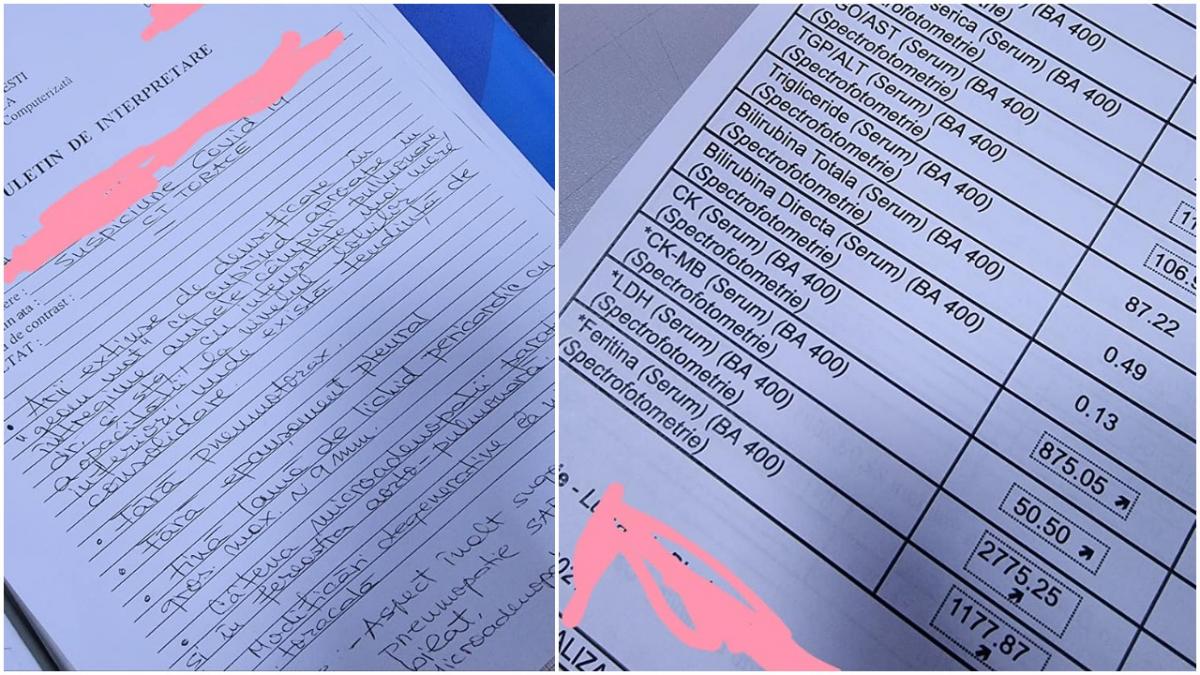 ESTI
A
Computerizată
ULETIN DE INTERPRETARE
SUSPICIUNE Covid 19
ST TORACE
ere :
in ata :
de contrast :
TAT :
Arii extinse de densificare
"geam mat" ce cuprind aproape în
întregime ambe câmpuri pulmonare
dr. și stg., cu intensitate mai mare
a opacității, la nivelul lobilor
inferiori, unde există tendință de
consolidare.
Fără pneumotorax.
Fără epanșament pleural
Fină lamă de lichid pericardic cu
gros. max. ~ 9 mm.
Câteva microadenopatii
în fereastra aorto-pulmonară
și
Modificări degenerative
toracală
- Aspect înalt suge
pneumopatie SAR
bilat,
icroadenop
serica (Serum) (BA 400)
(Spectrofotometrie)
GO/AST (Serum) (BA 400)
(Spectrofotometrie)
TGP/ALT (Serum) (BA 400)
(Spectrofotometrie)
Trigliceride (Serum) (BA 400)
(Spectrofotometrie)
Bilirubina Totala (Serum) (BA 400)
(Spectrofotometrie)
Bilirubina Directa (Serum) (BA 400)
(Spectrofotometrie)
CK (Serum) (BA 400)
(Spectrofotometrie)
*CK-MB (Serum) (BA 400)
(Spectrofotometrie)
*LDH (Serum) (BA 400)
(Spectrofotometrie)
*Feritina (Serum) (BA 400)
(Spectrofotometrie)
11
106.
87.22
0.49
0.13
875.05
50.50
2775.25
1177.87
ALIZA